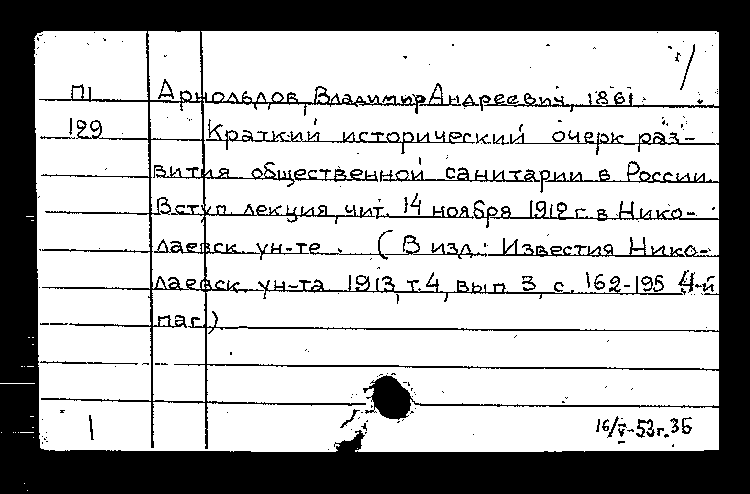 П1 Арнольдов, Владимир Андреевич, 1861
129 Краткий исторический очерк раз-
вития общественной санитарии в России.
Вступ. лекция, чит. 14 ноября 1912 г. в Нико-
лаевск. ун-те. (В изд.: Известия Нико-
лаевск. ун-та 1913, т. 4, вып. 3, с. 162-195 4-й
паг.)
1 16/V-53г. 35